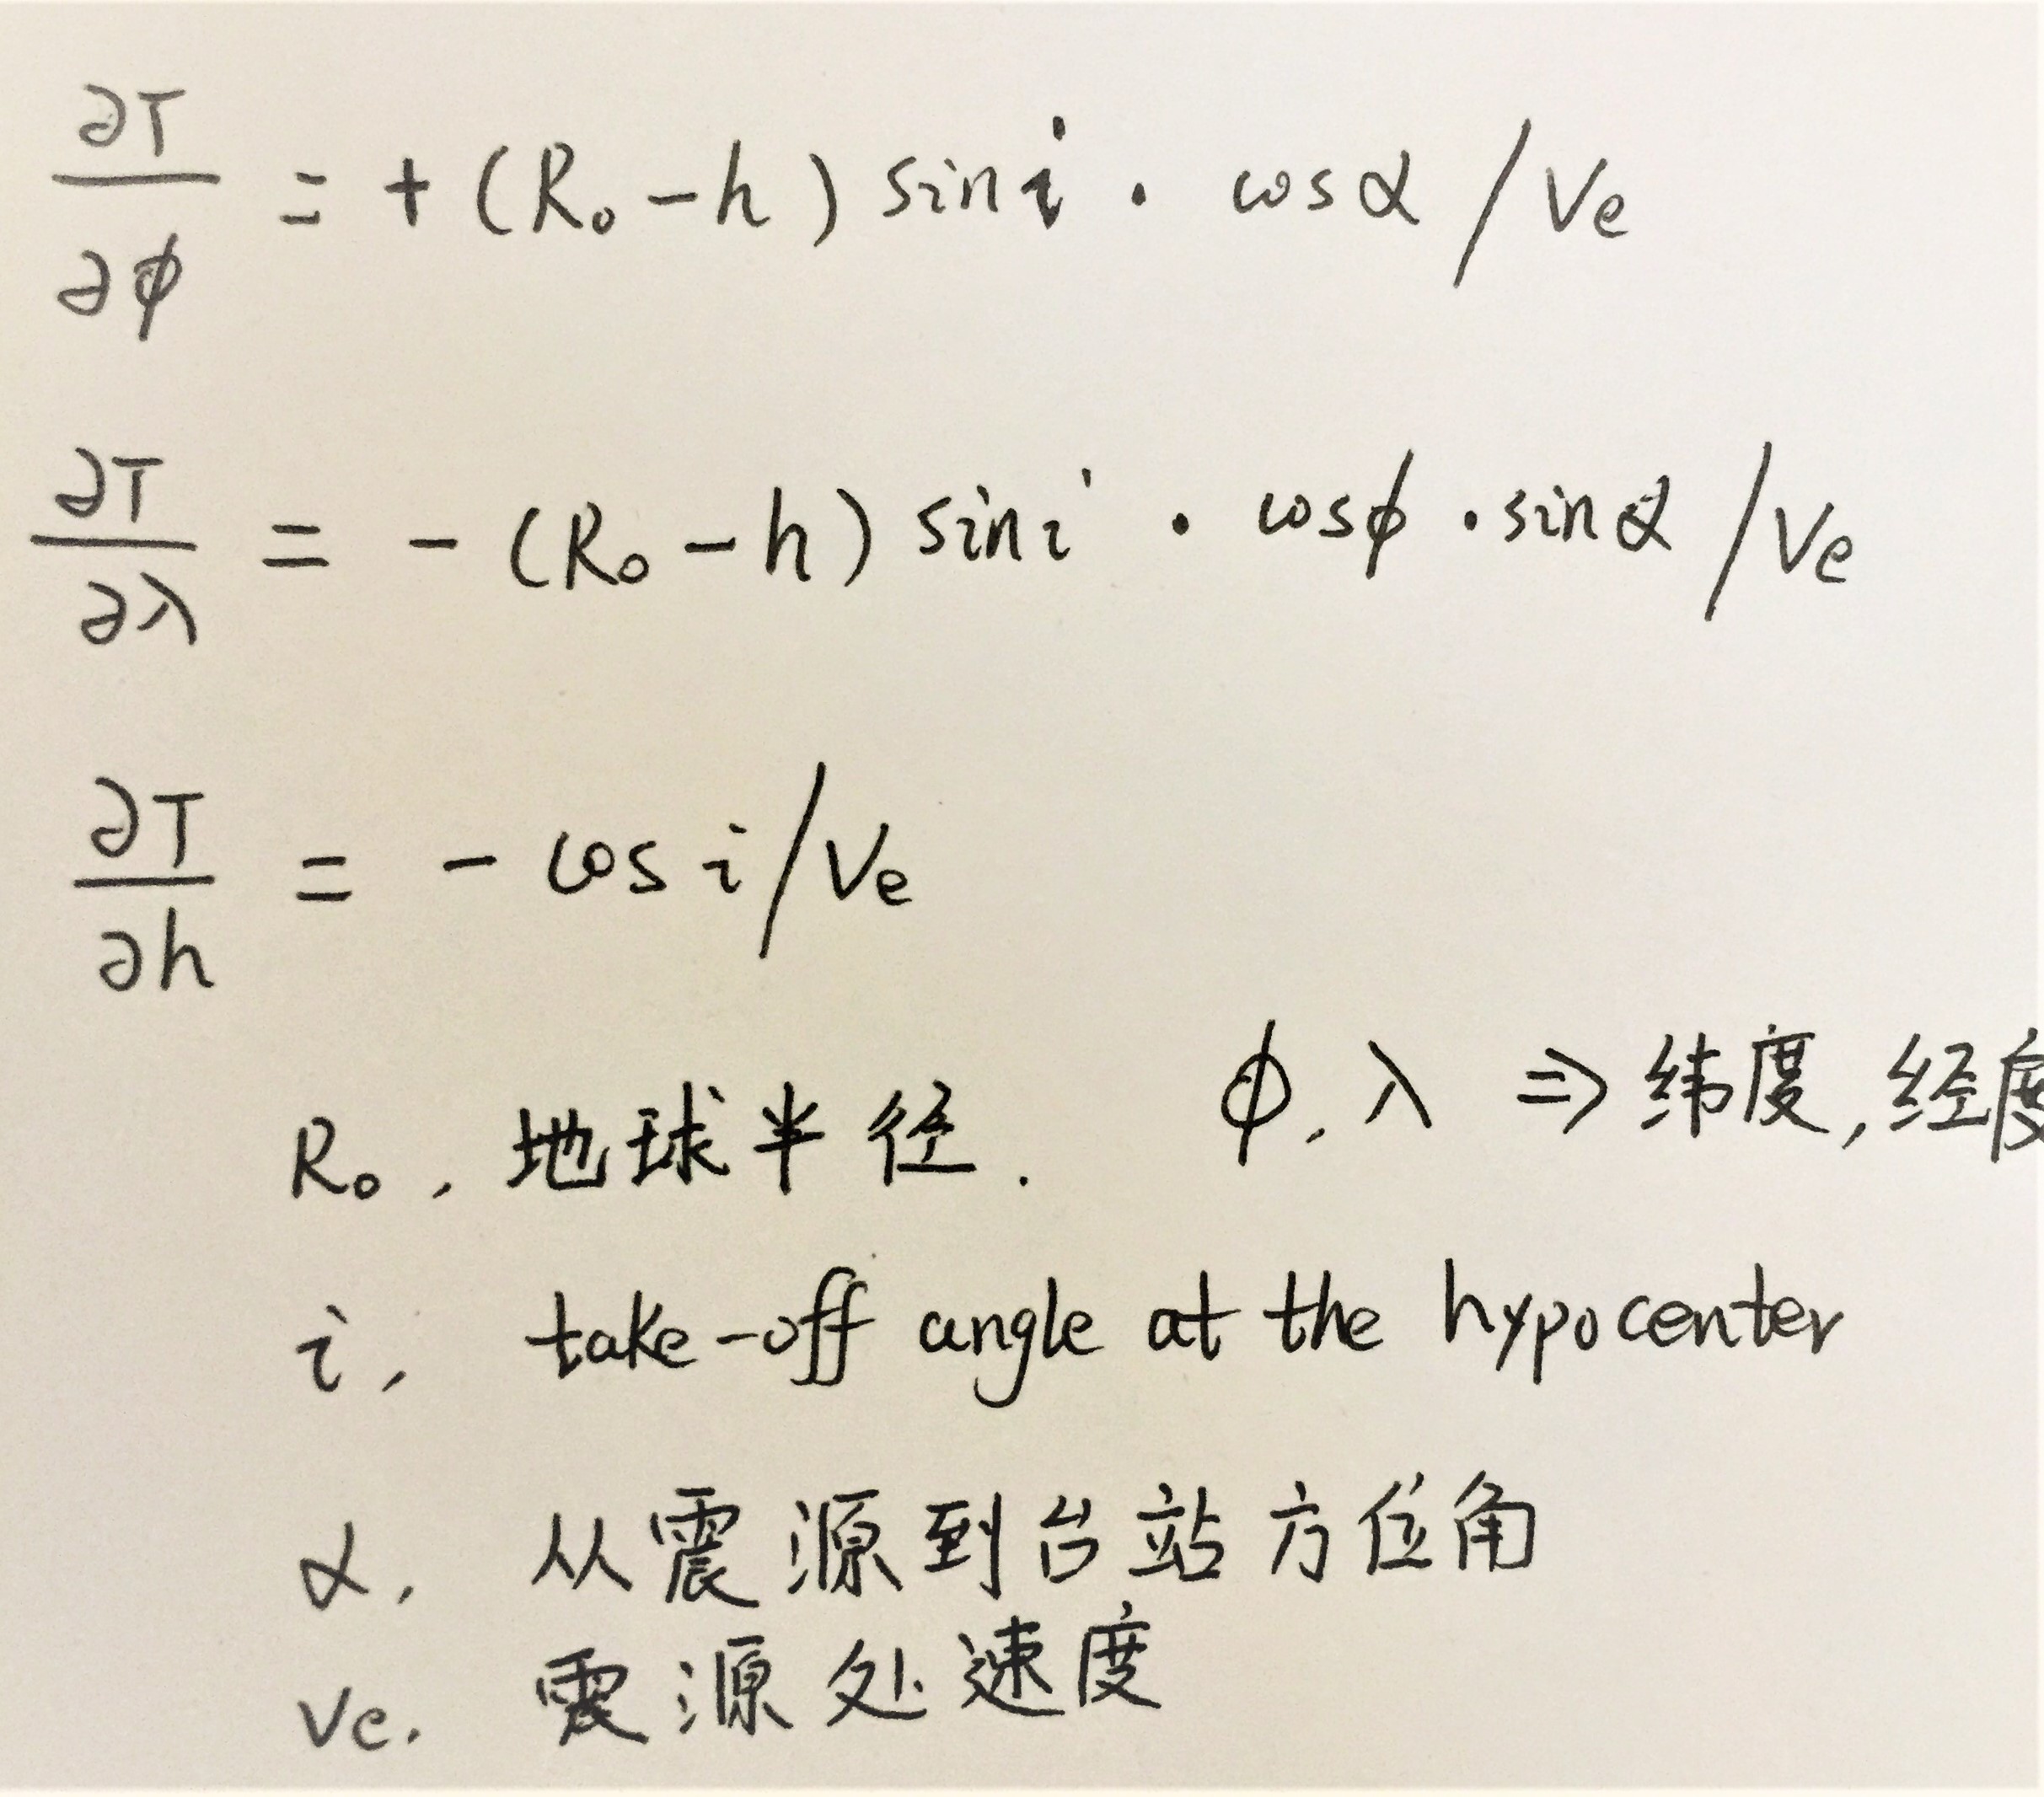 ∂T/∂φ = + (R₀ - h) sin i · cos α / Ve
∂T/∂λ = - (R₀ - h) sin i · cos φ · sin α / Ve
∂T/∂h = - cos i / Ve
R₀, 地球半径. φ, λ ⇒ 纬度, 经度
i, take-off angle at the hypocenter
α, 从震源到台站方位角
Ve. 震源处速度